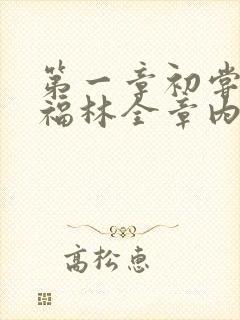 第一章初尝
福林全章内
高松惠